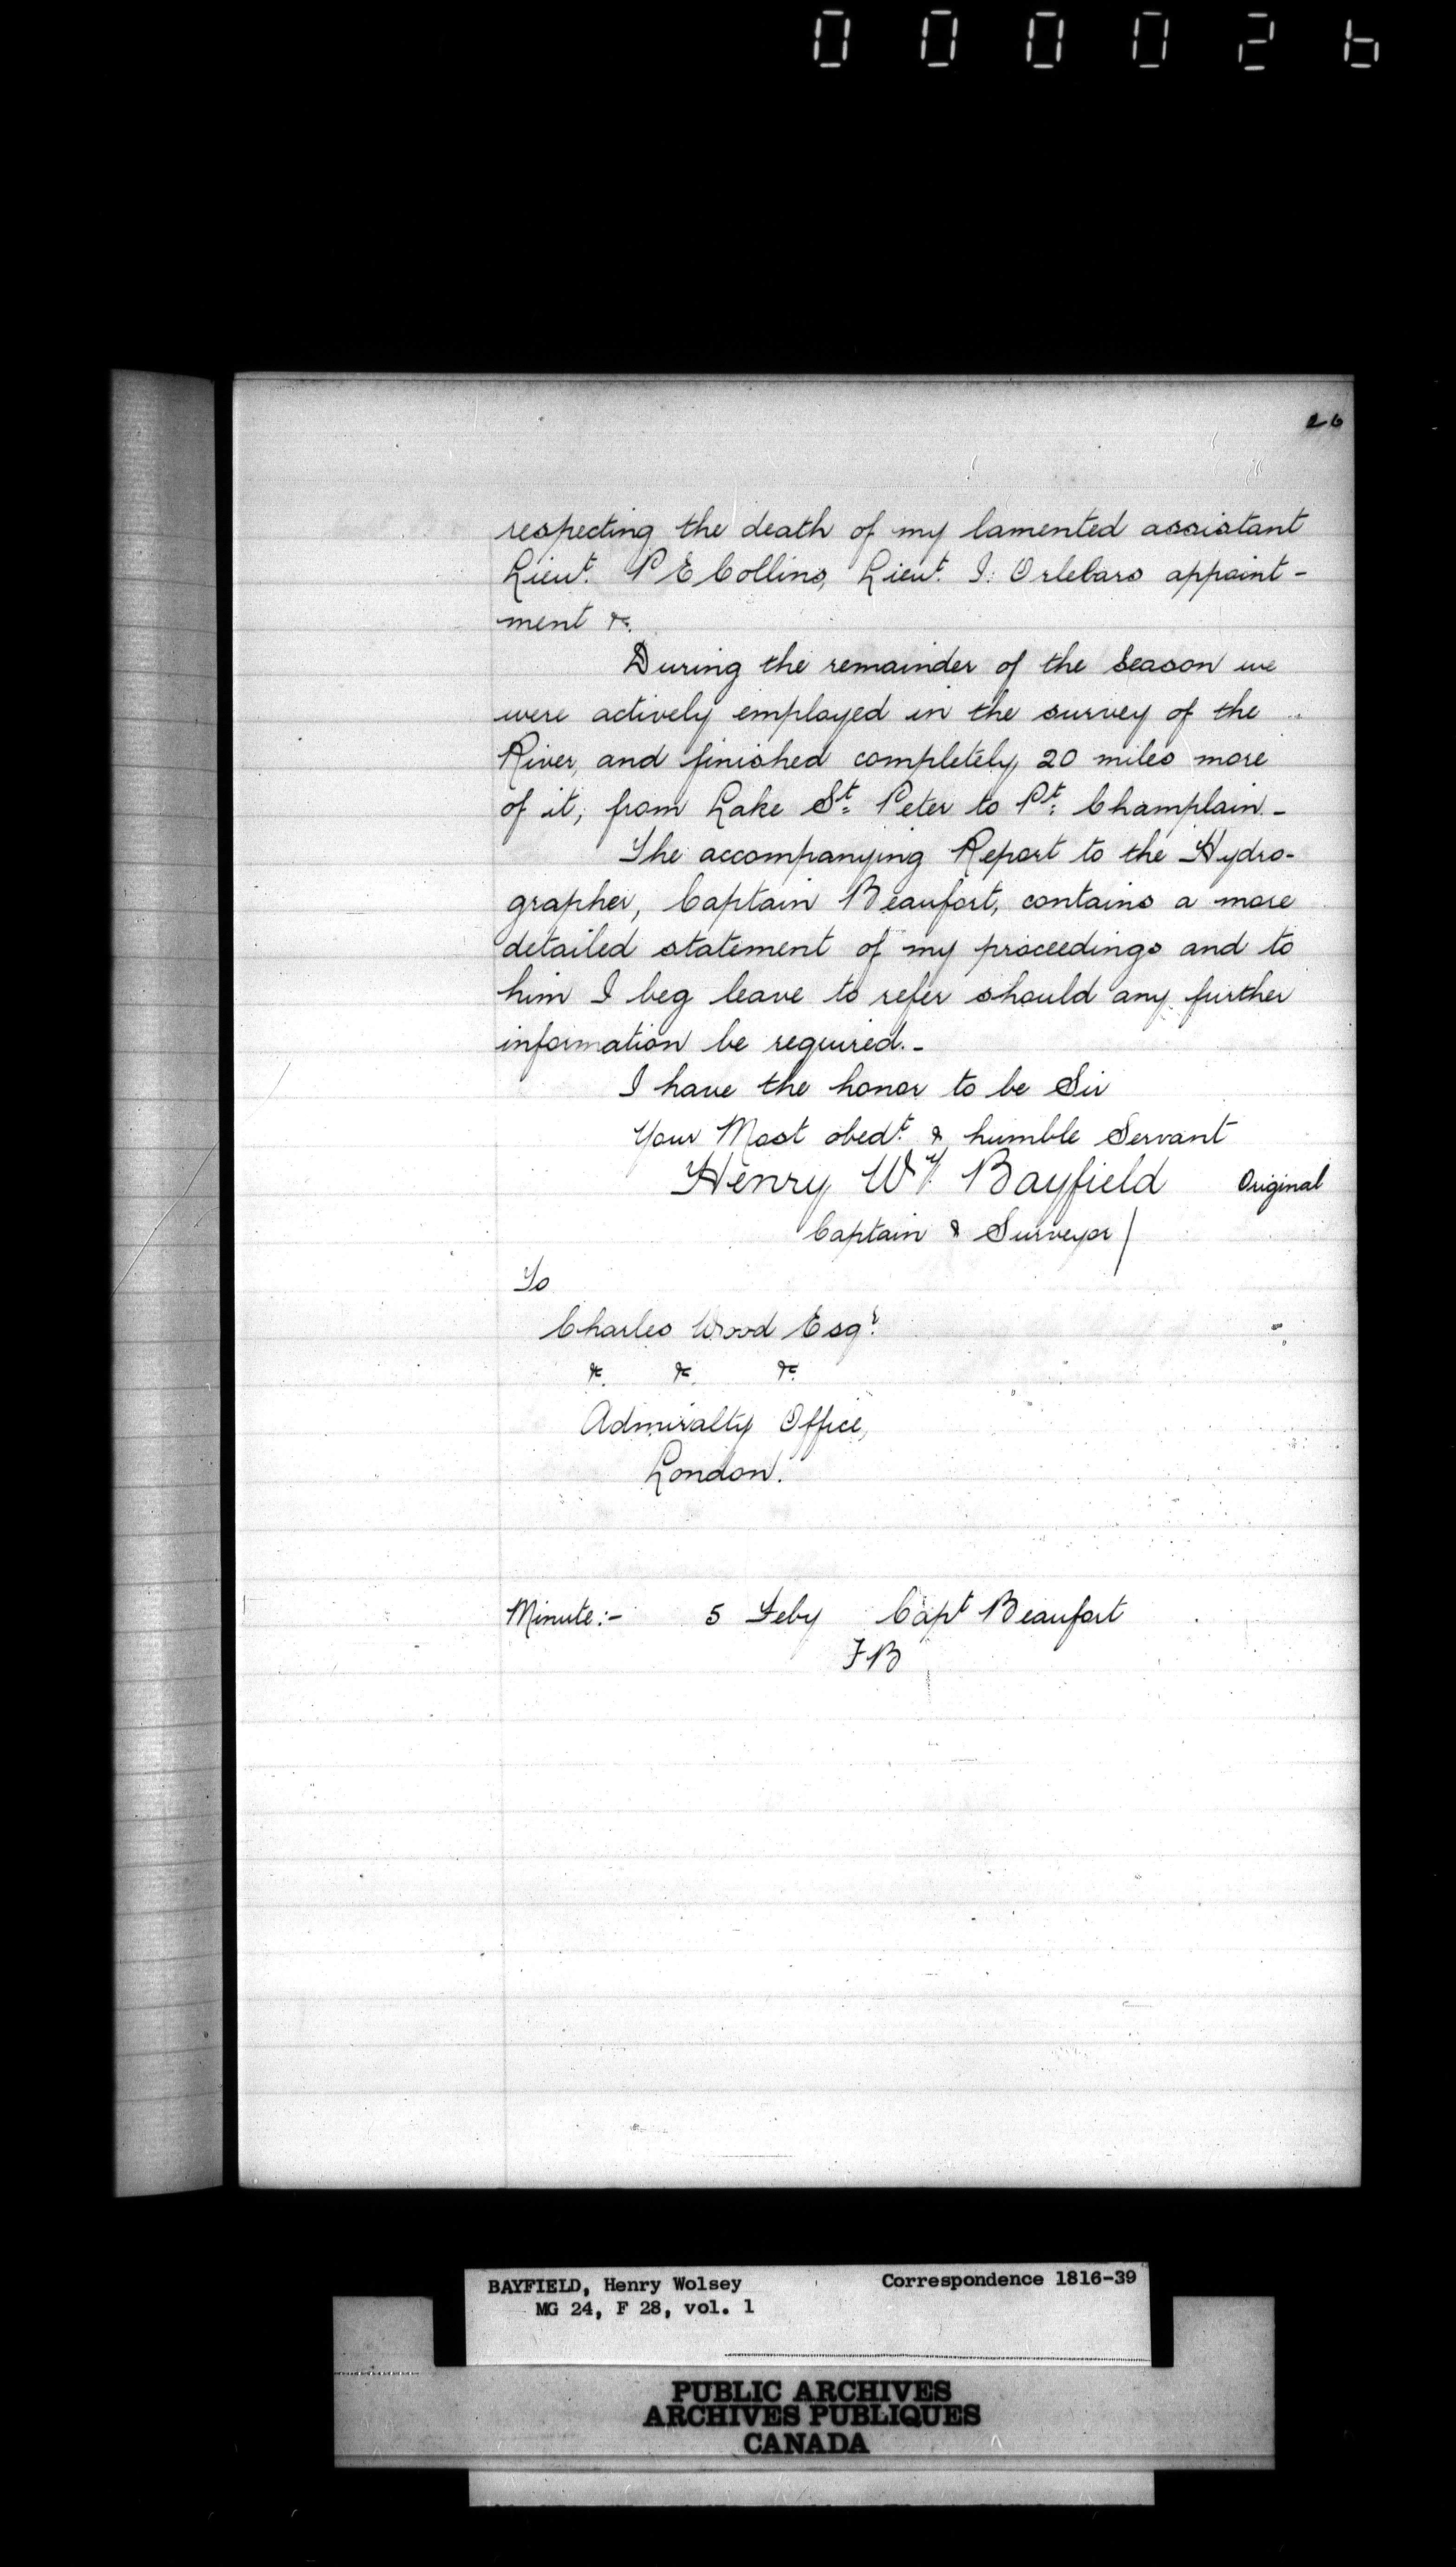 000026
26
respecting the death of my lamented assistant
Lieut. P E Collins, Lieut. I. Orlebars appoint-
ment &c.
During the remainder of the season we
were actively employed in the survey of the
River, and finished completely, 20 miles more
of it, from Lake St. Peter to Pt. Champlain.-
The accompanying Report to the Hydro-
grapher, Captain Beaufort, contains a more
detailed statement of my proceedings and to
him I beg leave to refer should any further
information be required.-
I have the honor to be Sir
Your Most obedt. & humble Servant
Henry Wy. Bayfield Original
Captain & Surveyor
To
Charles Wood Esqr.
&c. &c. &c.
Admiralty Office,
London.
Minute:- 5 Feby Capt Beaufort
FB
BAYFIELD, Henry Wolsey Correspondence 1816-39
MG 24, F 28, vol. 1
PUBLIC ARCHIVES
ARCHIVES PUBLIQUES
CANADA